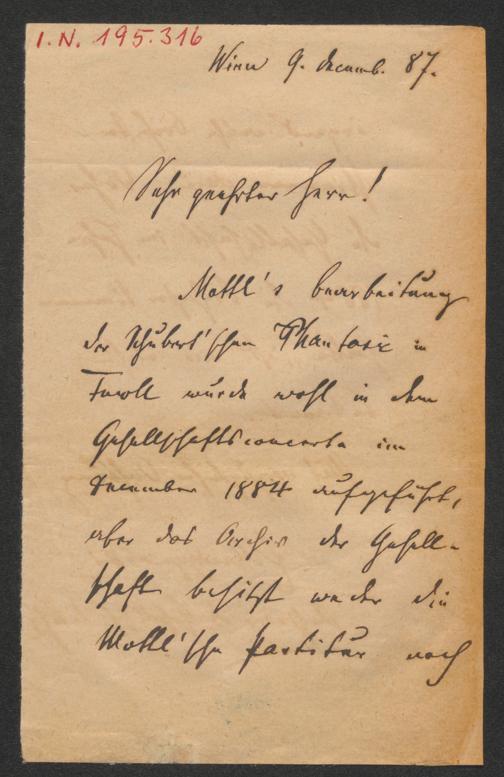 I.N. 195.316
Wien 9. Decemb. 87.
Sehr geehrter Herr!
Mottl's Bearbeitung
der Schubert'schen Phantasie in
Fmoll wurde wohl in dem
Gesellschaftsconcerte im
December 1884 aufgeführt,
aber das Archiv der Gesell-
schaft besitzt weder die
Mottl'sche Partitur noch